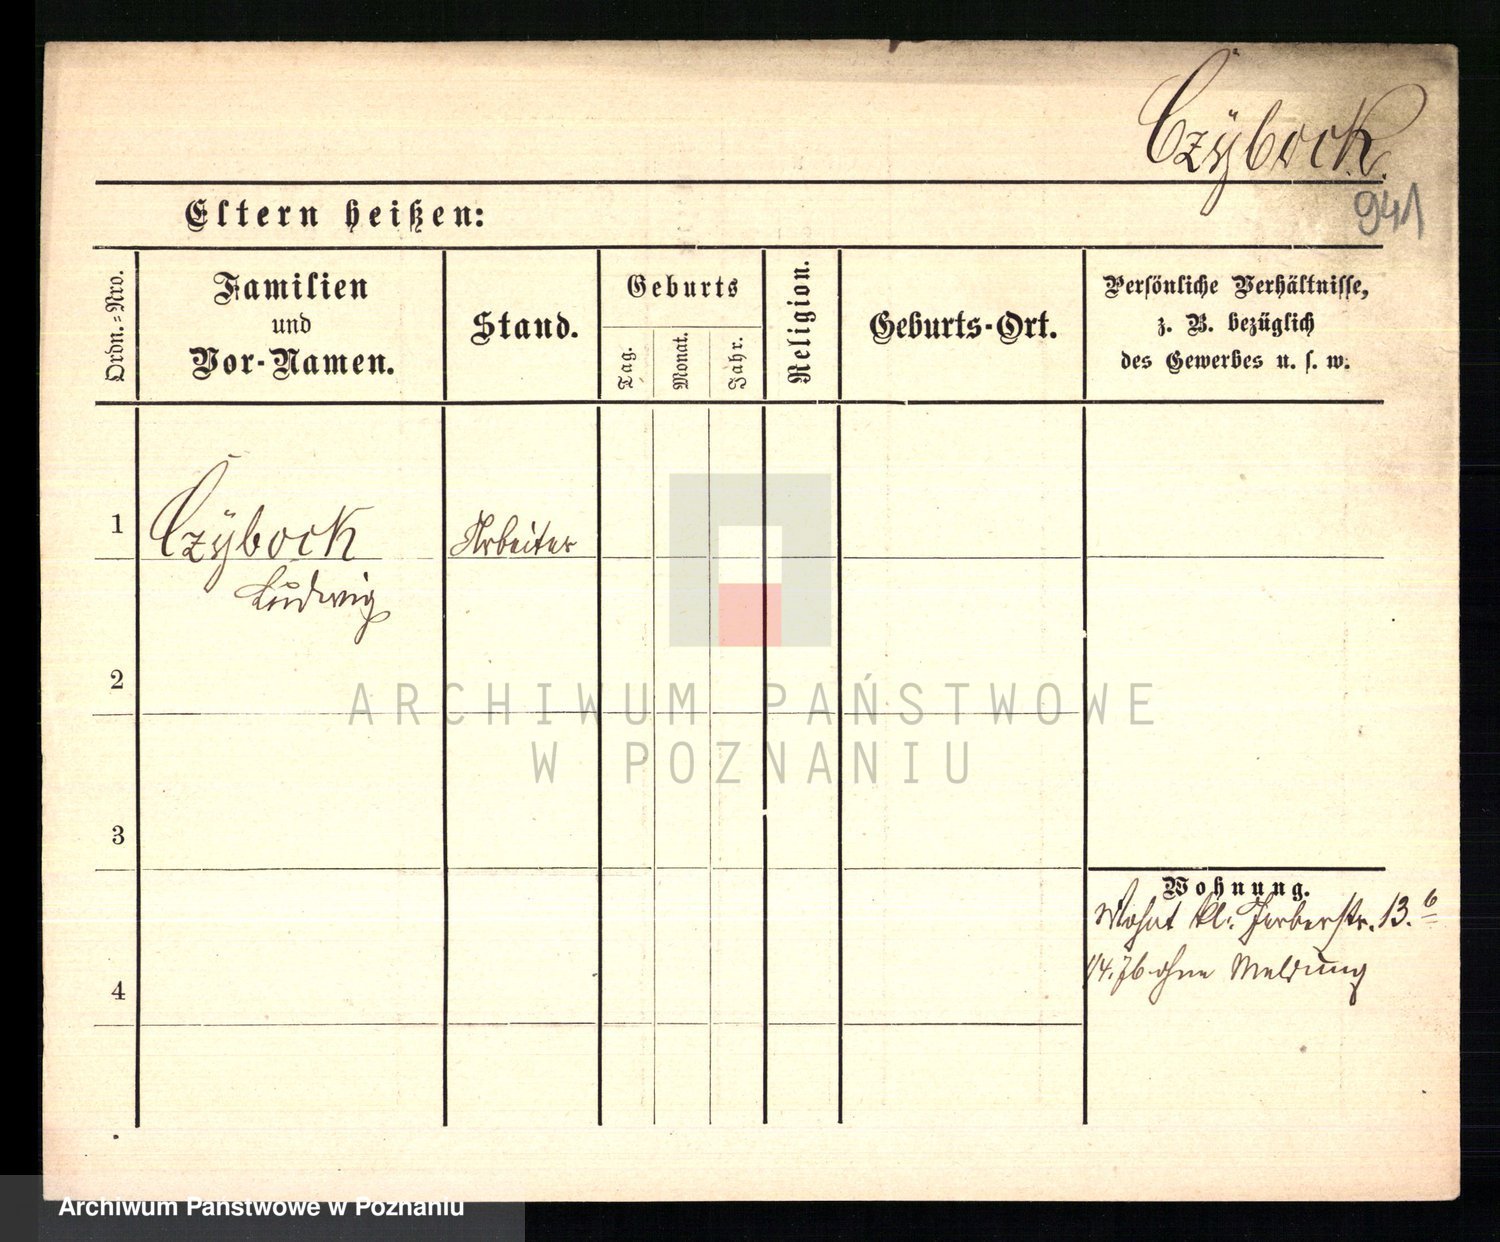 Czÿbock.
941
Eltern heißen:
Ordn.-Nro.
Familien
und
Vor-Namen.
Stand.
Geburts
Tag.
Monat.
Jahr.
Religion.
Geburts-Ort.
Persönliche Verhältnisse,
z. B. bezüglich
des Gewerbes u. s. w.
1
Czÿbock
Ludwig
Arbeiter
2
3
4
Wohnung.
Wohnt kl. Gerberstr. 13. 6
1/4. 76 ohne Meldung
ARCHIWUM PAŃSTWOWE
W POZNANIU
Archiwum Państwowe w Poznaniu